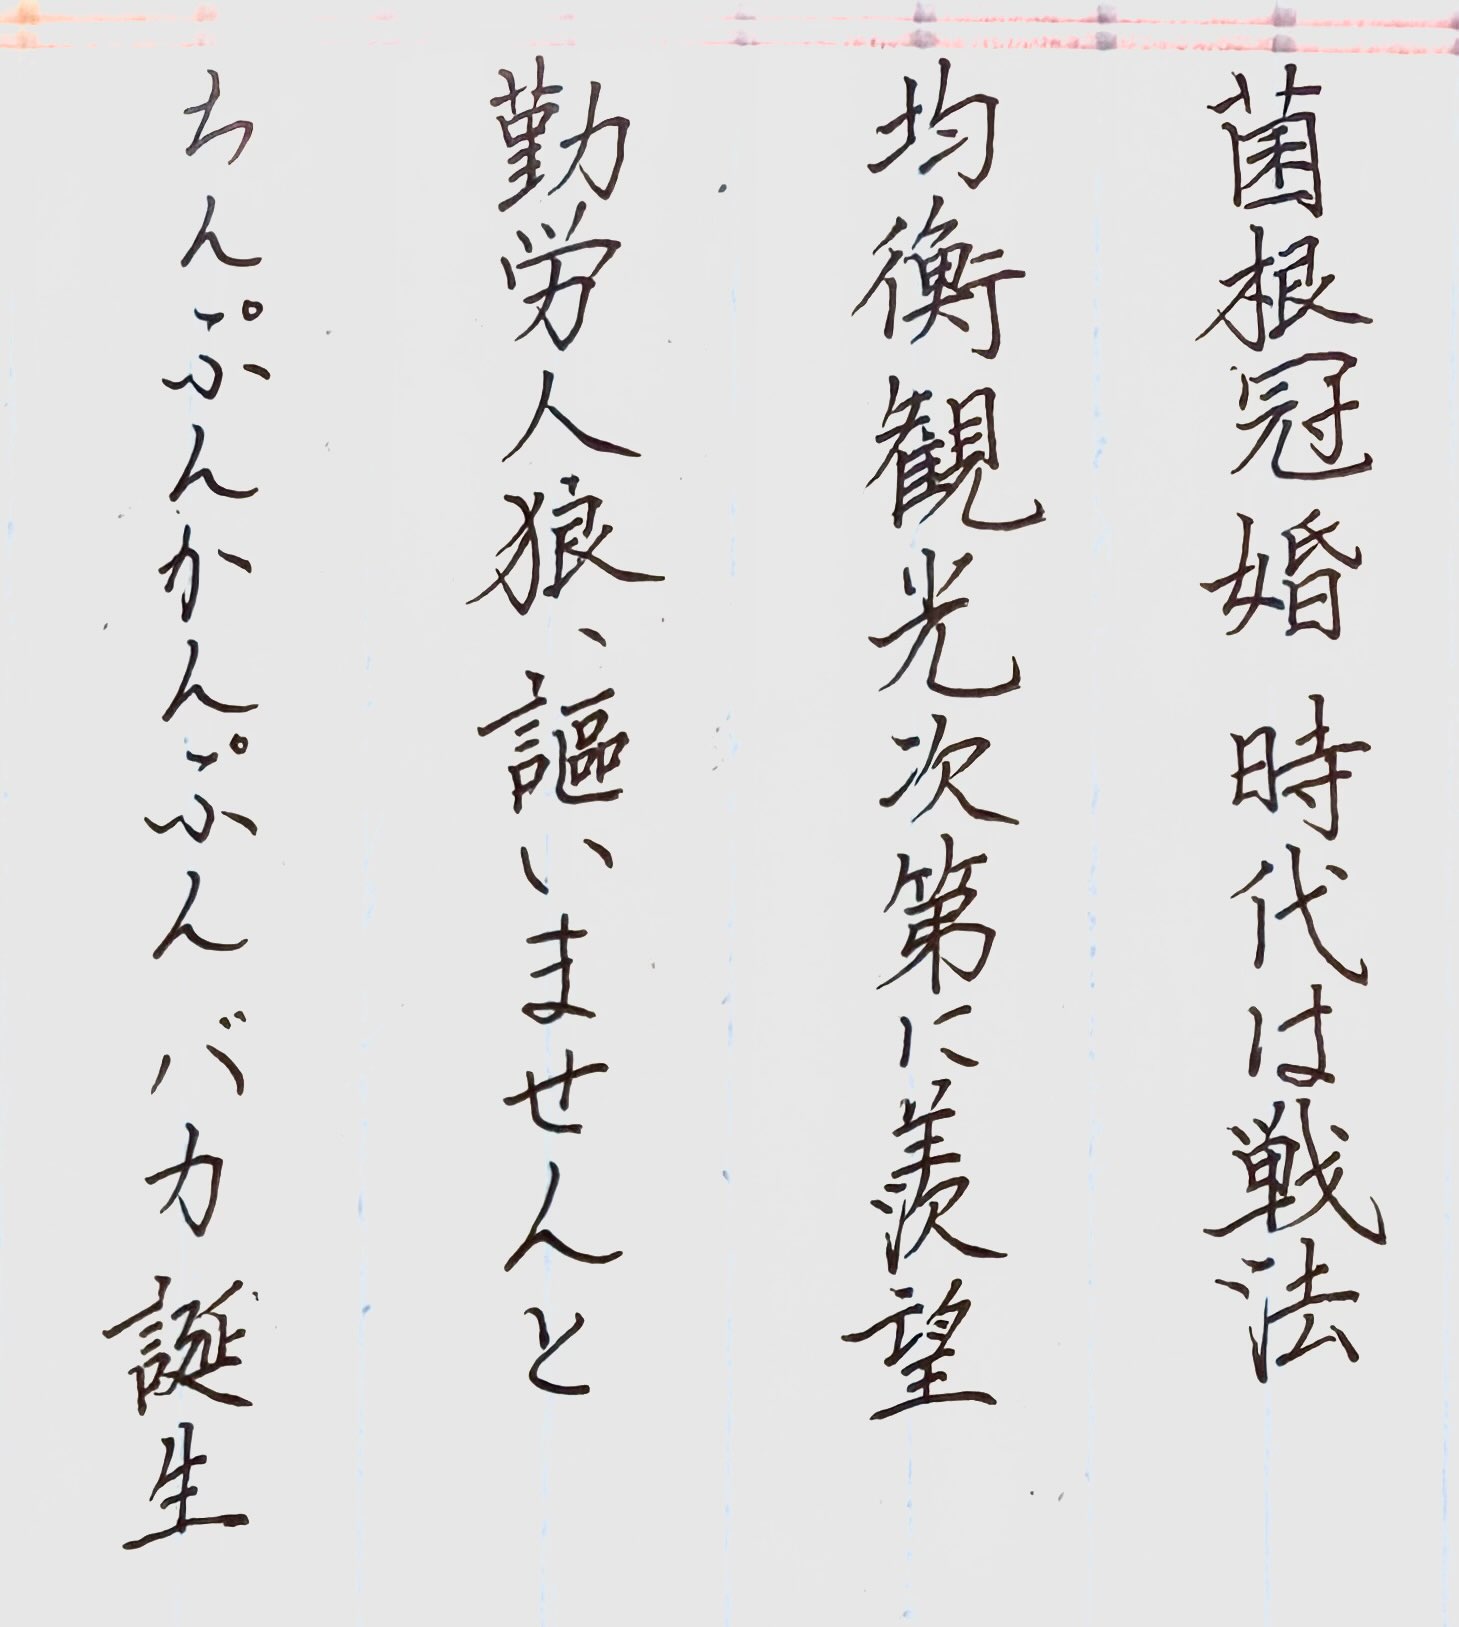 菌根冠婚 時代は戦法
均衡観光次第に羨望
勤労人狼、謳いませんと
ちんぷんかんぷん バカ 誕生